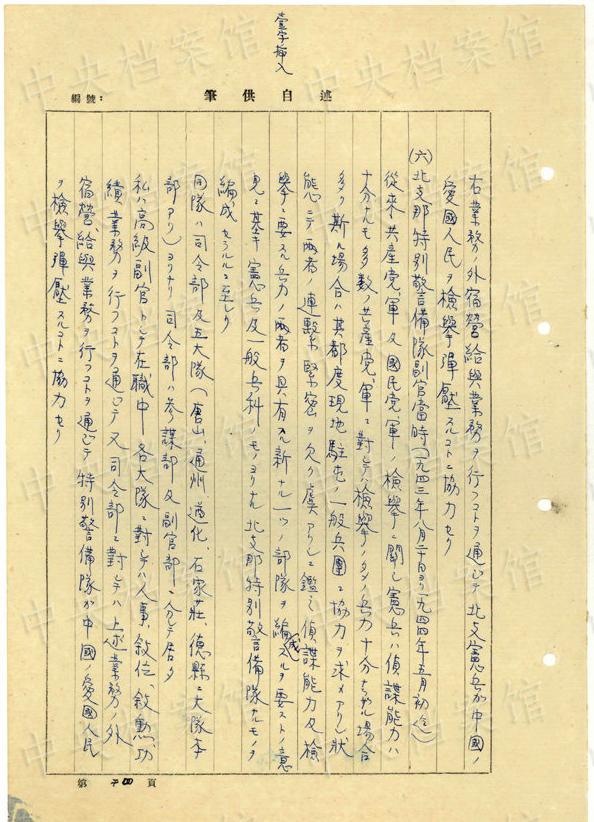 壹字挿入
編號：
筆供自述
右業務ノ外宿營給與業務ヲ行フコトヲ通シテ北支憲兵カ中國ノ
愛國人民ヲ檢擧彈壓スルコトニ協力セリ
(六)北支那特別警備隊副官當時(一九四三年八月二十日ヨリ一九四四年五月初迄)
從來共産党軍及國民党軍ノ檢擧ニ關シ憲兵ハ偵諜能力ハ
十分ナルモ多数ノ共産党軍ニ對シテハ檢擧ノタメノ兵力十分ナラサル場合
多ク斯ル場合ハ其都度現地駐屯ノ一般兵團ニ協力ヲ求メアリシ狀
態ニテ両者ノ連繋緊密ヲ欠ク虞アリシニ鑑ミ偵諜能力及檢
擧ニ要スル兵力ノ両者ヲ具有スル新ナル一ツノ部隊ヲ編成スルヲ要ストノ意
見ニ基キ憲兵及一般兵科ノモノヨリナル北支那特別警備隊ナルモノヲ
編成セラルルニ至レリ
同隊ハ司令部及五大隊(唐山、通州、遵化、石家莊、德縣ニ大隊本
部アリ)ヨリナリ司令部ハ参謀部及副官部ニ分レテ居リ
私ハ高級副官トシテ在職中各大隊ニ對シテハ人事、敍位、敍勲、功
績業務ヲ行フコトヲ通シテ又司令部ニ對シテハ上述業務ノ外
宿營、給與業務ヲ行フコトヲ通シテ特別警備隊カ中國ノ愛國人民
ヲ檢擧彈壓スルコトニ協力セリ
第 頁
中央档案馆